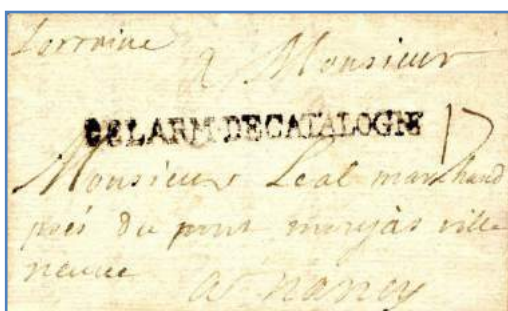 Lorraine
a Monsieur
DELARM·DECATALOGNE
17
Monsieur Leal marchand
prés du pont ville
neuue
a nancy